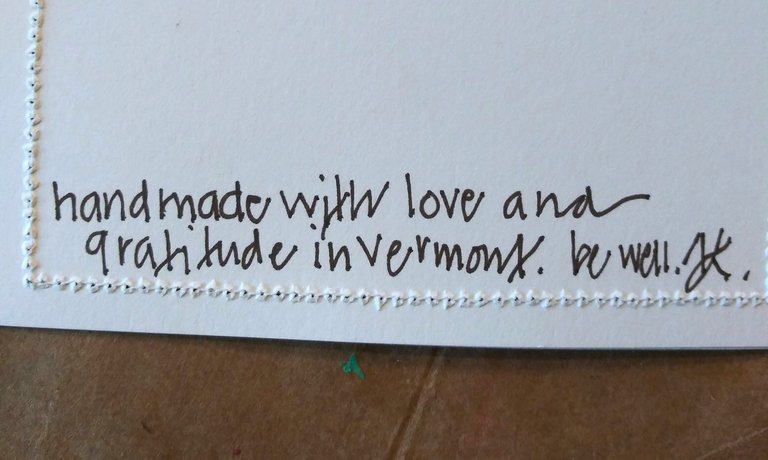 handmade with love and
gratitude in vermont. be well.